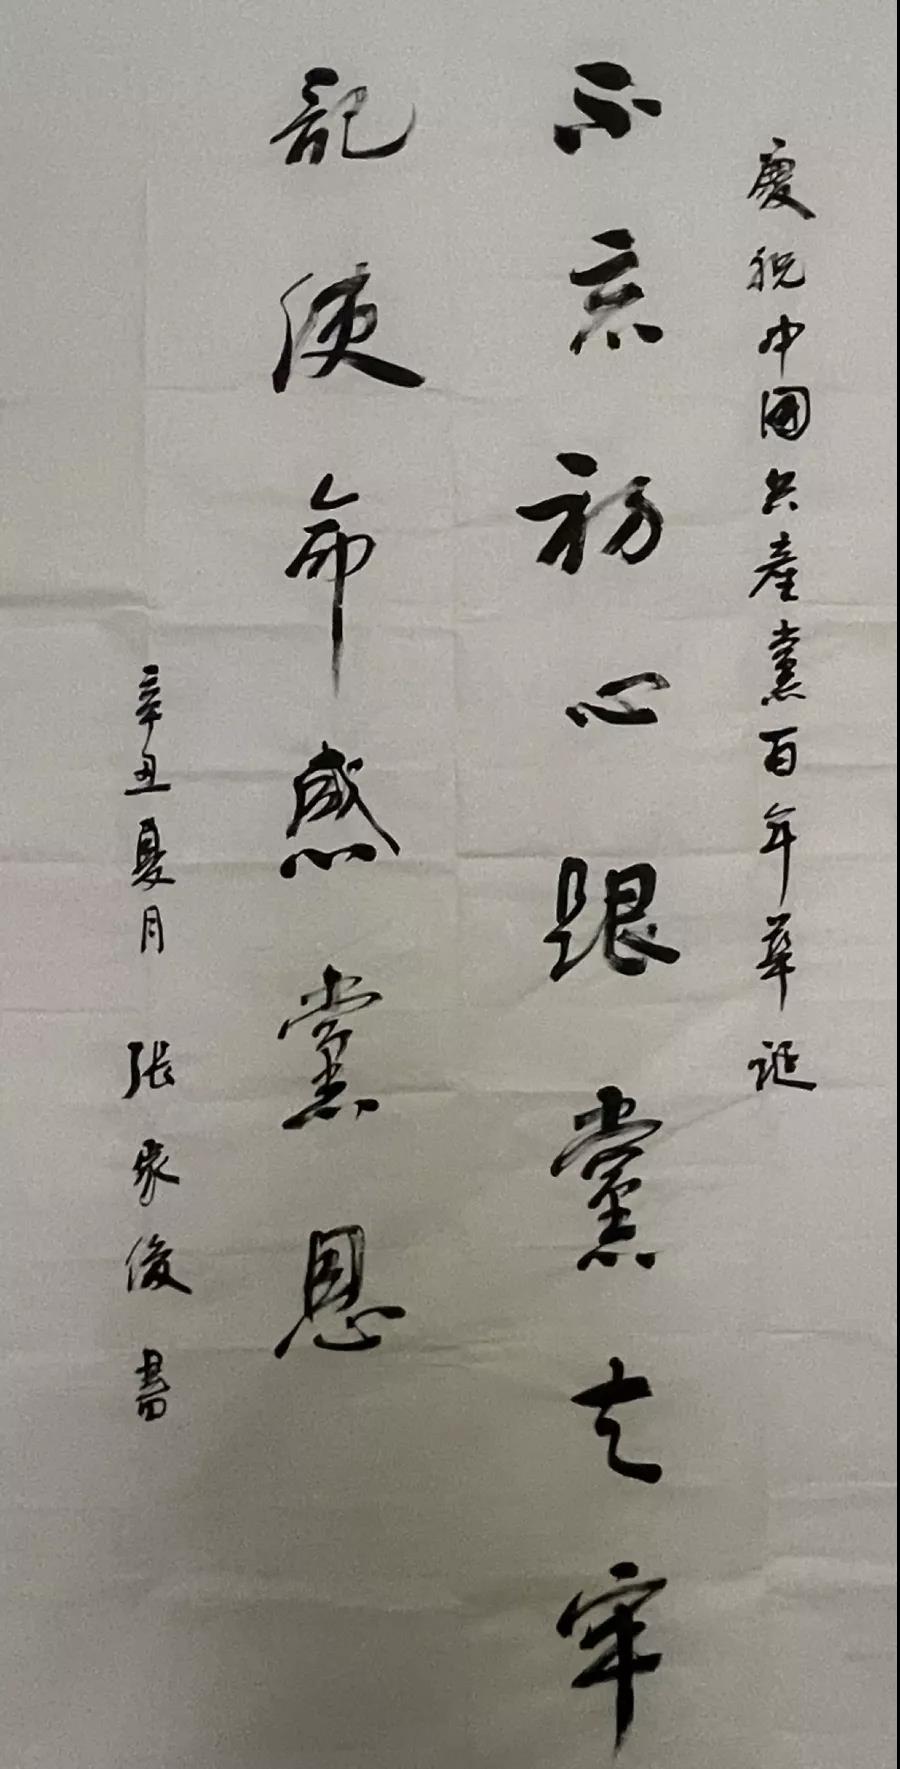 慶祝中國共產黨百年華誕
不忘初心跟黨走牢
記使命感黨恩
辛丑夏月 张家俊書